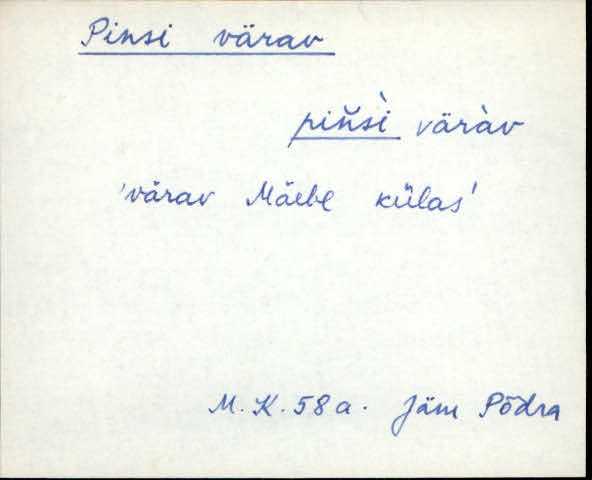 Pinsi värav
pin̆sì väràv
'värav Mäebe külas'
M. K. 58 a. Jäm Põdra